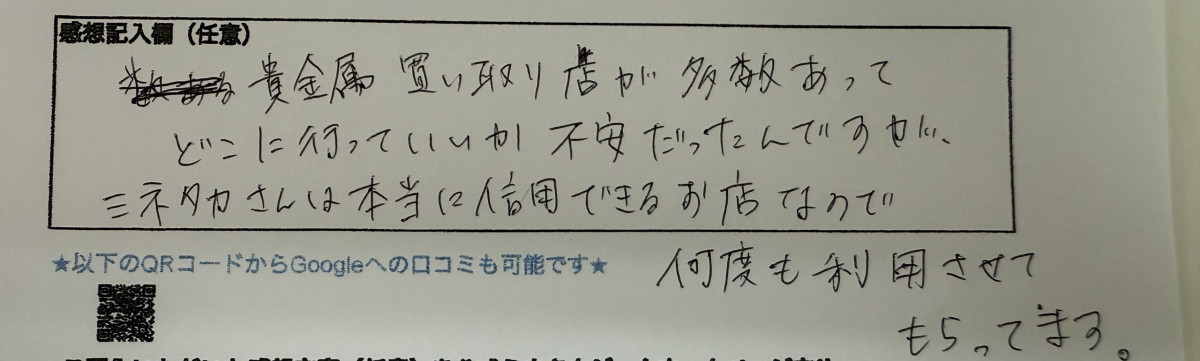 感想記入欄（任意）
貴金属 買い取り店が 多数あって
どこに行っていいか 不安だったんですが、
ミネタカさんは本当に信用できるお店なので
★以下のQRコードからGoogleへの口コミも可能です★
何度も利用させて
もらってます。